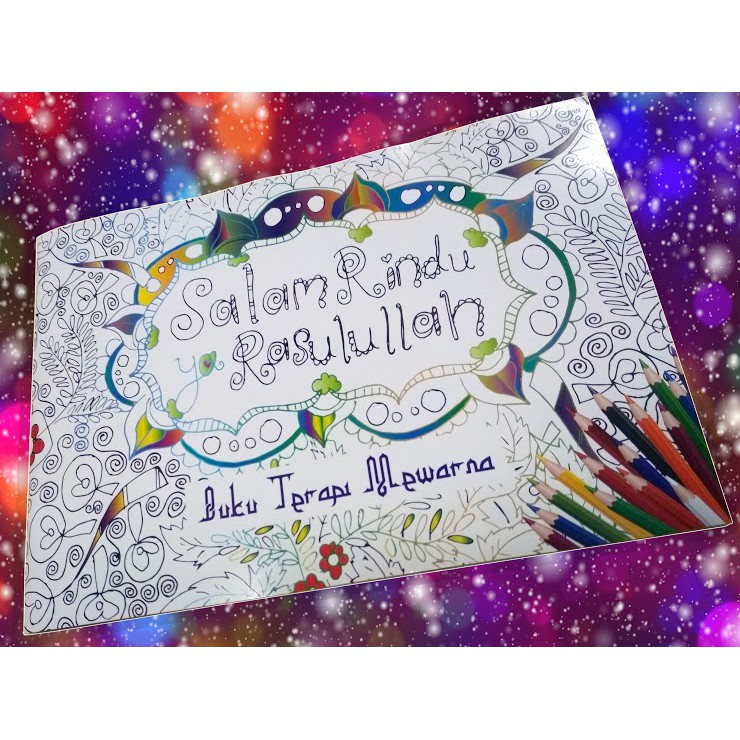 Salam Rindu
ya Rasulullah
Buku Terapi Mewarna